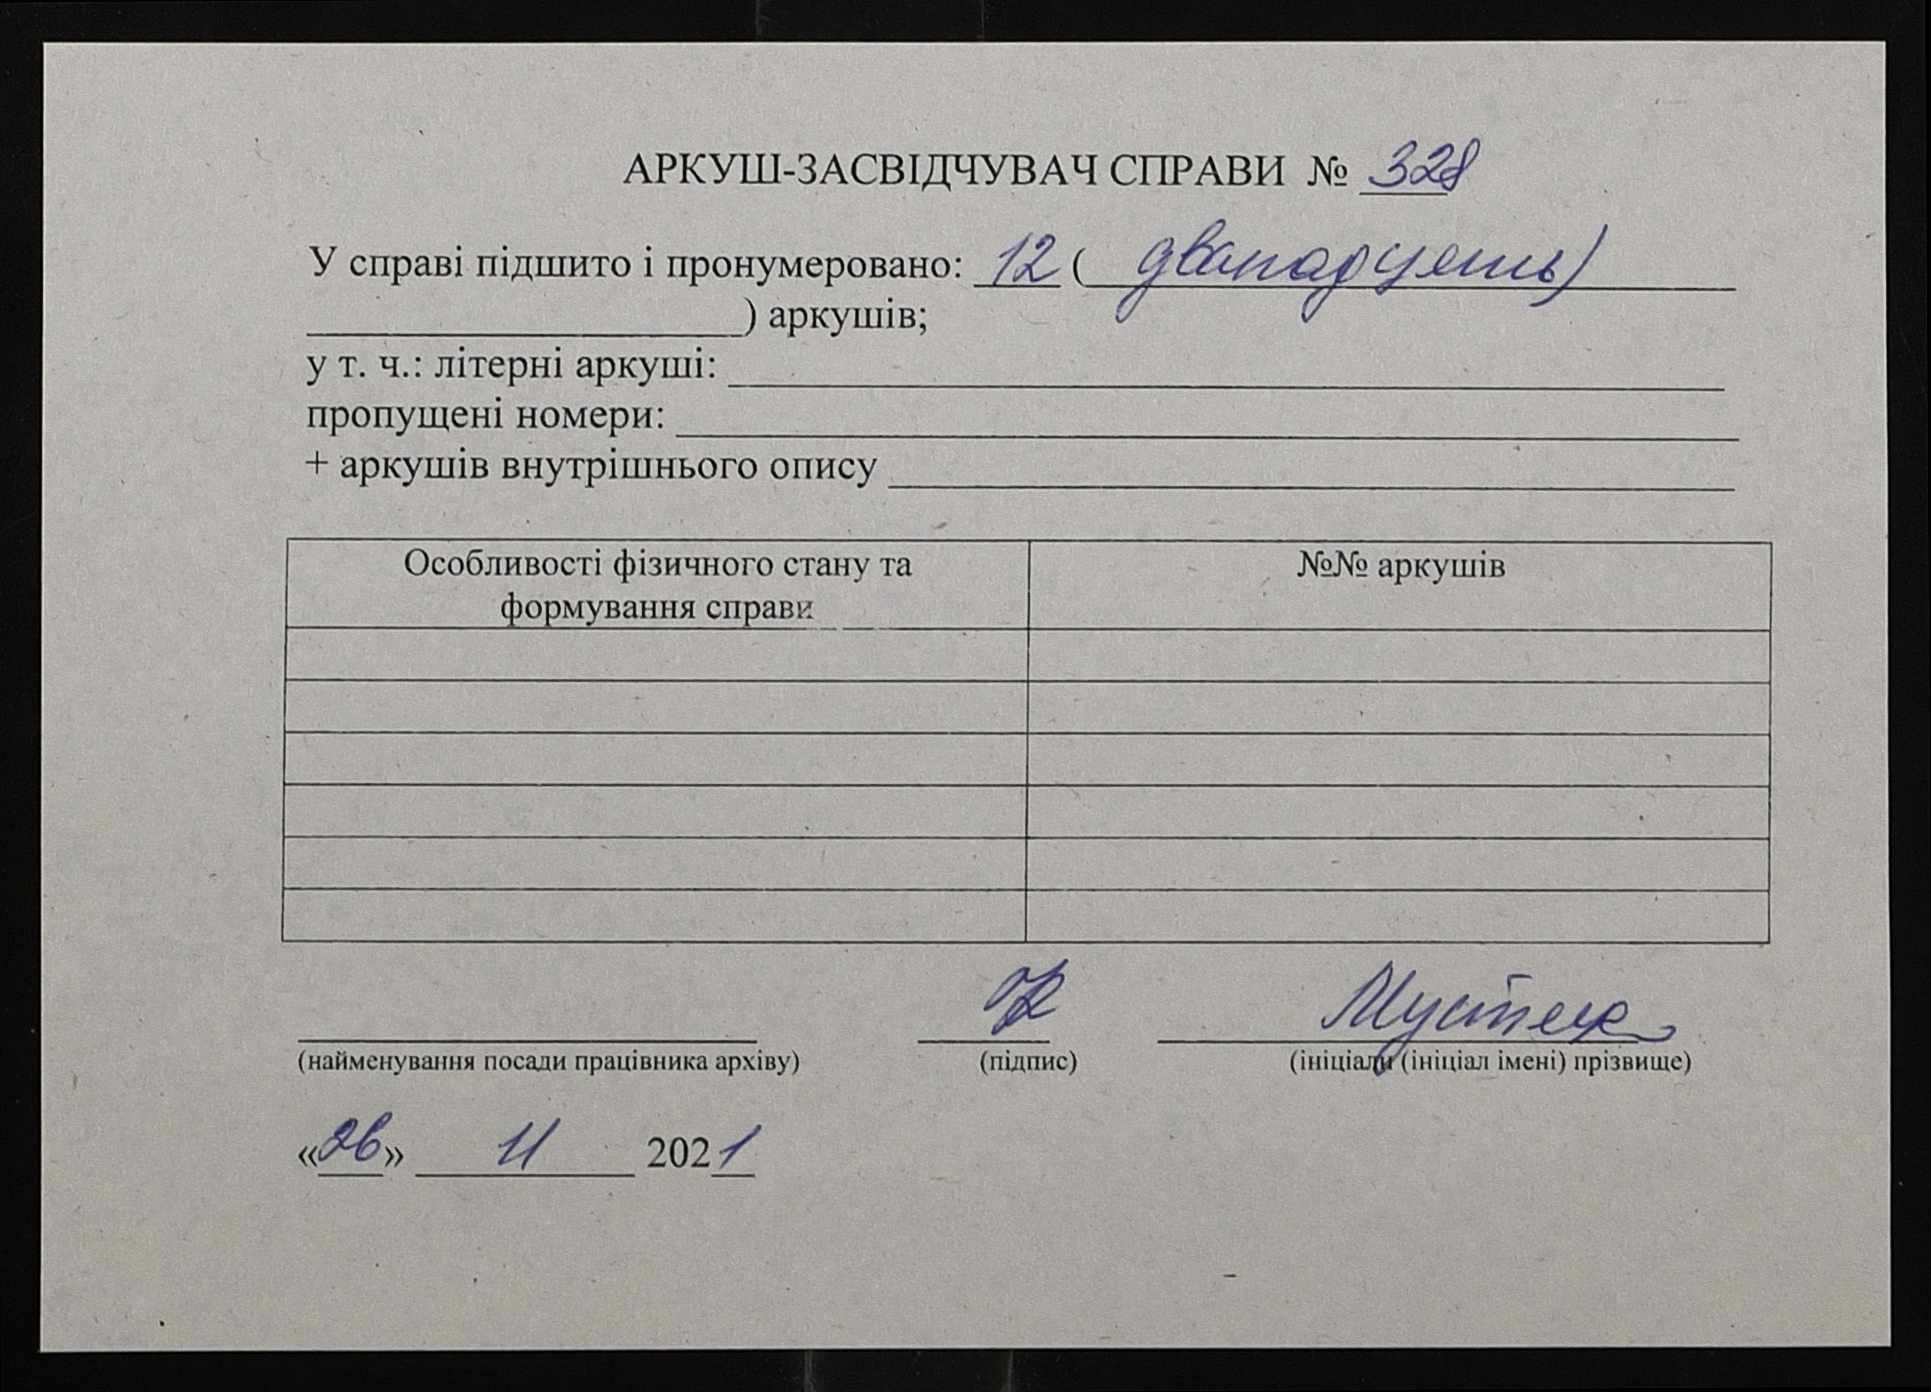 АРКУШ-ЗАСВІДЧУВАЧ СПРАВИ № 328
У справі підшито і пронумеровано: 12 ( дванадцять)
) аркушів;
у т. ч.: літерні аркуші:
пропущені номери:
+ аркушів внутрішнього опису
Особливості фізичного стану та
формування справи
№№ аркушів
(найменування посади працівника архіву)
(підпис)
(ініціали (ініціал імені) прізвище)
«26» 11 2021